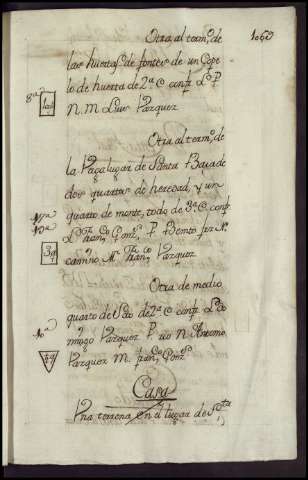 Otra al term.º de 1063
las huertas de fontes de un Cope
lo de huerta de 2ª C confr. L. P.
N. M. Luis Vazquez
8ª
Otra al term.º de
la Paga lugar de Santa Baia de
dos quartos de heredad, y un
quarto de monte, todo de 3ª C confr.
L. Fran.co Gonz.z P. Benito fr. N.
camino M. Fran.co Vazquez
3q
Otra de medio
quarto de Sdo de 2ª C confr. L. Do
mingo Vazquez P. rio N. Antonio
Vazquez M. fran.co Gonz.z
Casa
Vna terrena en el lugar de S.ta